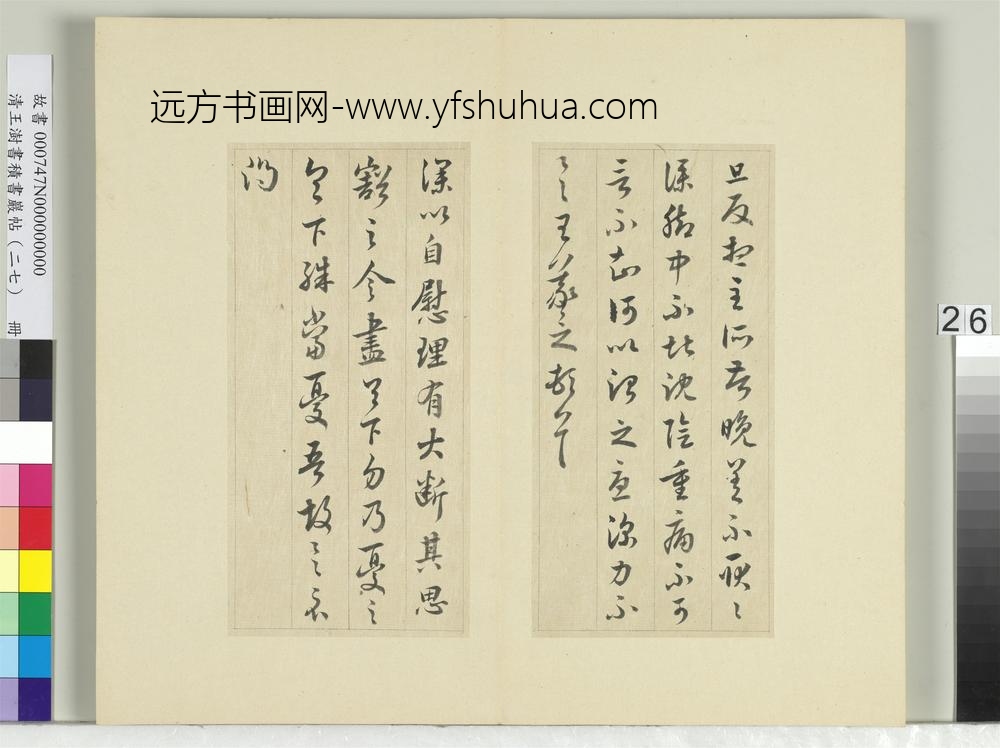 远方书画网-www.yfshuhua.com
旦反想至所苦晚差不耿〻
僕脚中不堪沈陰重痛不可
言不知何以治之憂深力不
王羲之頓首
深以自慰理有大斷其思
豁之令盡足下勿乃憂之
足下殊當憂吾故
問
故書 000747N000000000
清王澍書積書巖帖（二七） 冊
26